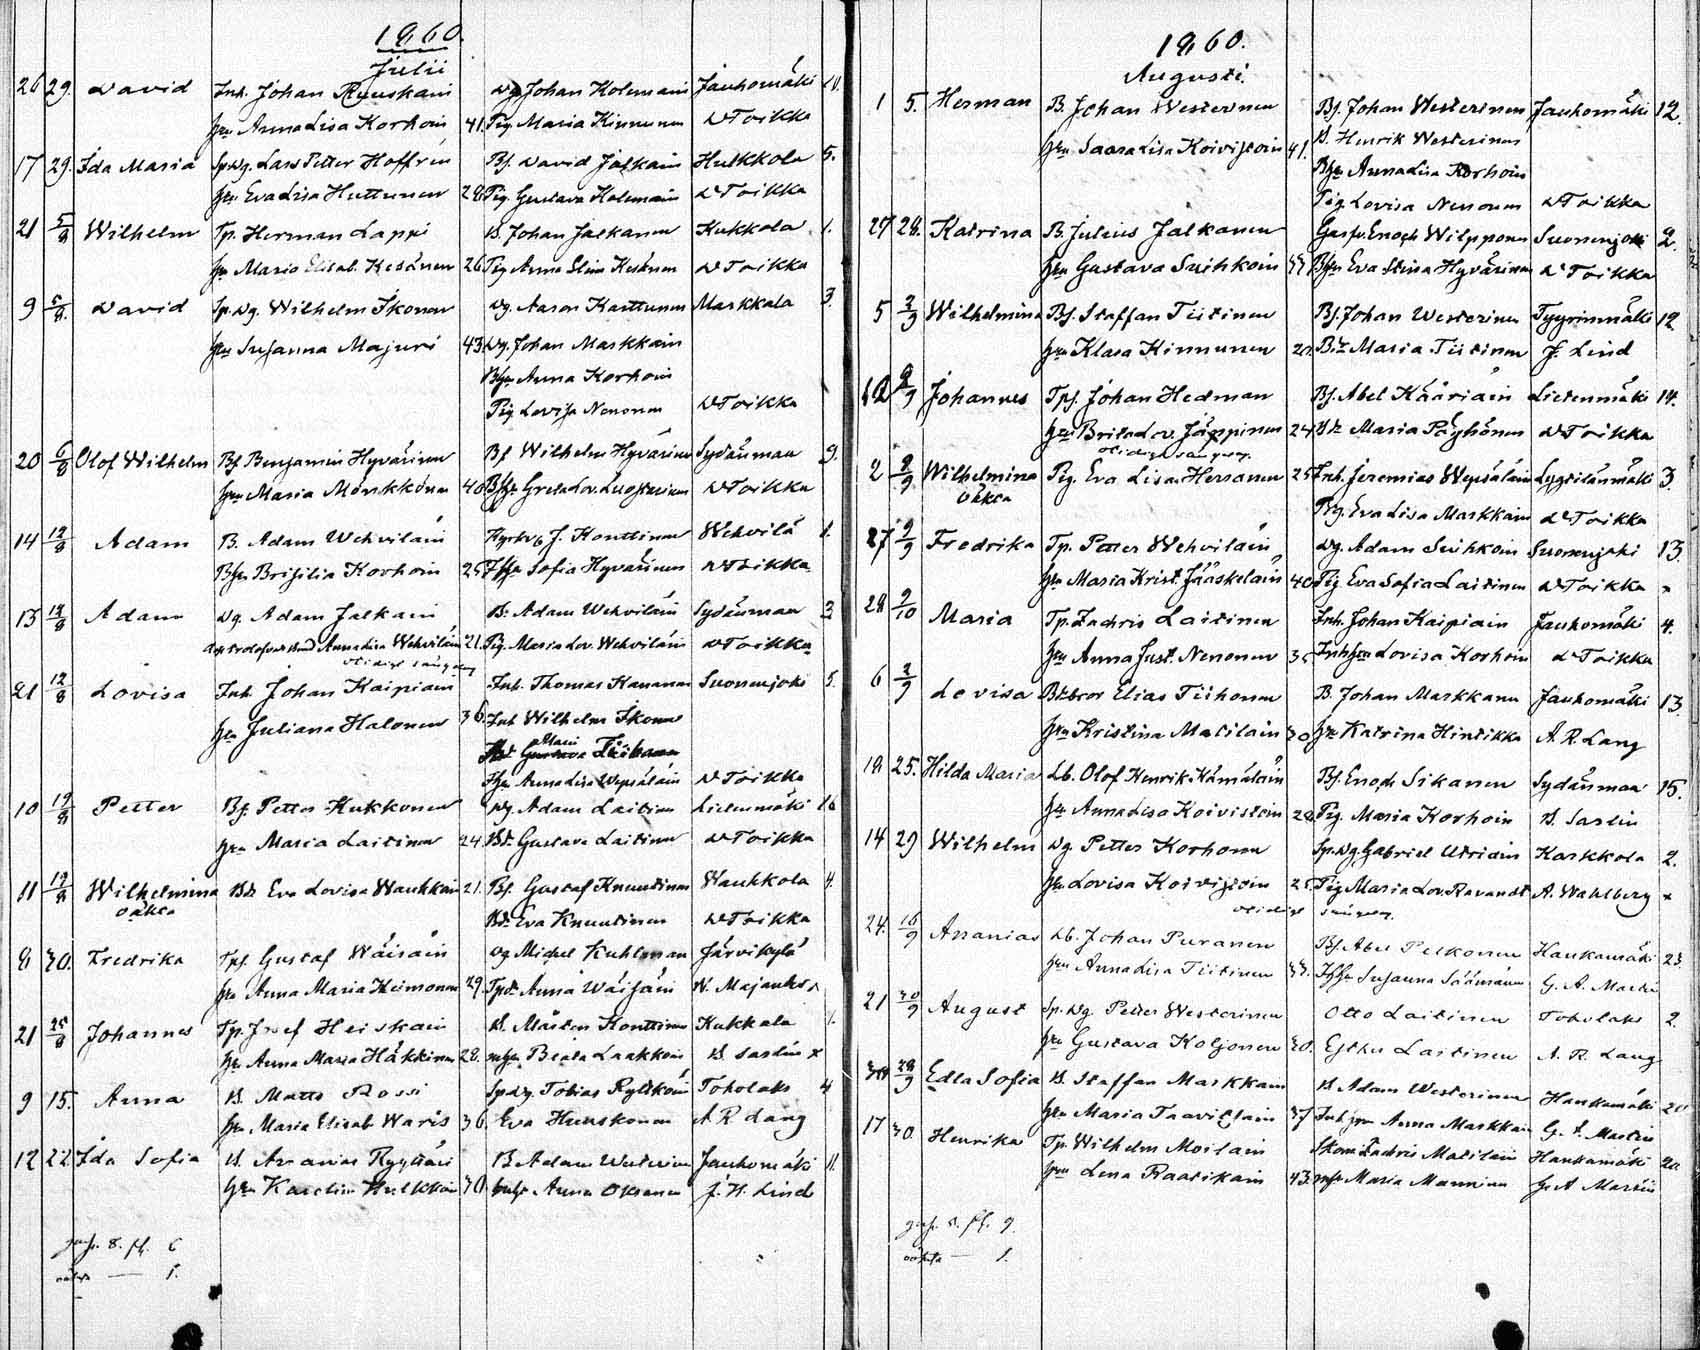 1860.
Julii
26 29. David Inh. Johan Ruuskain Dg Johan Holmain Jauhomäki 11.
hu Anna Lisa Korhoin 41. Pig. Maria Kinnunen D Toikka
17 29. Ida Maria Sp.dg. Lars Petter Hoffrén Bs. David Jalkain Hulkkola 5.
hu Eva Lisa Huttunen 28. Pig. Gustava Holmain D Toikka
21 5/8 Wilhelm Tp. Herman Lappi B. Johan Jalkanen Kukkola 1.
hu Maria Elisab. Kesänen 26. Pig Anna Stina Kesänen D Toikka
9 5/8. David Sp. Dg. Wilhelm Ikonen Dg. Aaron Karttunen Markkala 3.
hu Susanna Majuri 43. Dg. Johan Markkain
Bhu Anna Korhoin
Pig. Lovisa Nenonen D Toikka
20 6/8 Olof Wilhelm Bs Benjamin Hyvärinen Bs Wilhelm Hyvärinen Sydänmaa 9.
hu Maria Mönkkönen 40. Greta Lov. D Toikka
14 12/8 Adam B. Adam Wehviläin J. Konttinen Wehvilä 1.
Bhu Brijilia Korhoin 25. Sofia Hyvärinen D Toikka
13 12/8 Adam Dg. Adam Jalkain B. Adam Wehviläin Sydänmaa 3
Anna Lisa Wehviläin 21. Pig. Maria Lov. Wehviläin D Toikka
21 12/8 Lovisa Inh Johan Kaipiain Inh. Thomas Kananen Suonenjoki 5.
hu Juliana Halonen 36. Inh Wilhelm Ikonen
Anna Lisa Wepsäläin D Toikka
10 19/8 Petter Bs. Petter Kukkonen Dg. Adam Laitinen Lietenmäki 16
hu Maria Laitinen 24. Bdr Gustava Laitinen D Toikka
11 19/8 Wilhelmina Bdr Eva Lovisa Wauhkain 21. Bs. Gustaf Knuutinen Wauhkola 4.
oäkta Bdr. Eva Knuutinen D Toikka
8 30. Fredrika Tps. Gustaf Wäisäin Dg Michel Kuhlman Järvikylä
hu Anna Maria Heimonen 29. Tpdr Anna Wäisäin
21 25/8 Johannes Tp. Josef Heiskain B. Mårten Konttinen Kukkala 1.
hu Anna Maria Häkkinen 28. Beata Laakkoin B. Sarlin x
9 15. Anna B. Matts Rossi Sp.dg. Tobias Rytkköin Toholaks 4
hu Maria Elisab Waris 36. Eva Huuskonen A R Lang
12 22. Ida Sofia B. Ananias Ryytläi B Adam Westerinen Jauhomäki 11.
hu Karolin Hulkkoin 30. Anna Oksanen J. H. Lind
8. 6
oäkta — 1.
1860.
Augusti.
1 5. Herman B. Johan Westerinen Bs. Johan Westerinen Jauhomäki 12.
hu Saara Lisa Koivistoin 41. B. Henrik Westerinen
Bhu Anna Lisa Korhoin
Pig. Lovisa Nenonen D Toikka
27 28. Katrina B. Julius Jalkanen Enoch Wilpponen Suonenjoki 2.
hu Gustava Suihkoin 37 Bhu Eva Stina Hyvärinen D Toikka
5 2/9 Wilhelmina Bs. Staffan Tiitinen Bs. Johan Westerinen Tyyrinmäki 12
hu Klara Kinnunen 20. Bdr Maria Tiitinen J. Lind
12 2/9 Johannes Tps. Johan Hedman Bs. Abel Kääriäin Lietenmäki 14.
hu Brita Lov. Jäppinen 24. Bdr Maria Pöyhönen D Toikka
2 9/9 Wilhelmina Pig. Eva Lisa Hersanen 25. Inh. Jeremias Wepsäläin 3.
oäkta Pig. Eva Lisa Markkain D Toikka
27 9/9 Fredrika Tp. Petter Wehviläin Dg. Adam Suihkoin Suonenjoki 13.
hu Maria Krist. Jääskeläin 40. Pig. Eva Sofia Laitinen D Toikka
28 9/10 Maria Tp. Zachris Laitinen Inh. Johan Kaipiain Jauhomäki 4.
hu Anna Just. Nenonen 35 Inh hu Lovisa Korhoin D Toikka
6 2/9 Lovisa Bdr bror Elias Tiihonen B Johan Markkanen Jauhomäki 13.
hu Kristina Matilain 30 hu Katrina Hintikka A. R. Lang
18 25. Hilda Maria Lb. Olof Henrik Hämäläin Bs. Enoch Sikanen Sydänmaa 15.
hu Anna Lisa Koivistoin 28. Pig. Maria Korhoin B. Sarlin
14 29 Wilhelm Dg Petter Korhonen Sp. Dg. Gabriel Utriain Karkkola 2.
hu Lovisa Koivistoin 25. Pig Maria Lov. Ravandt A. Wahlberg x
24. 16/9 Ananias Lb. Johan Puranen Bs. Abel Pelkonen Hankamäki 23.
hu Anna Lisa Tiitinen 33. Susanna Säämänen G. A. Martin
21 30/9 August Sp. Dg. Petter Westerinen Otto Laitinen Toholaks 2.
hu Gustava Koljonen 30. Esther Laitinen A. R. Lang
28/9 Edla Sofia B. Staffan Markkain B Adam Westerinen Hankamäki 20
hu Maria Taavilain 37 Inh hu Anna Markkain G. A. Martin
17 30. Henrika Tp. Wilhelm Moilain Skom. Zachris Matilain Hankamäki 20
hu Lena Raatikain 43. Maria Manninen G. A Martin
8. 9.
oäkta — 1.